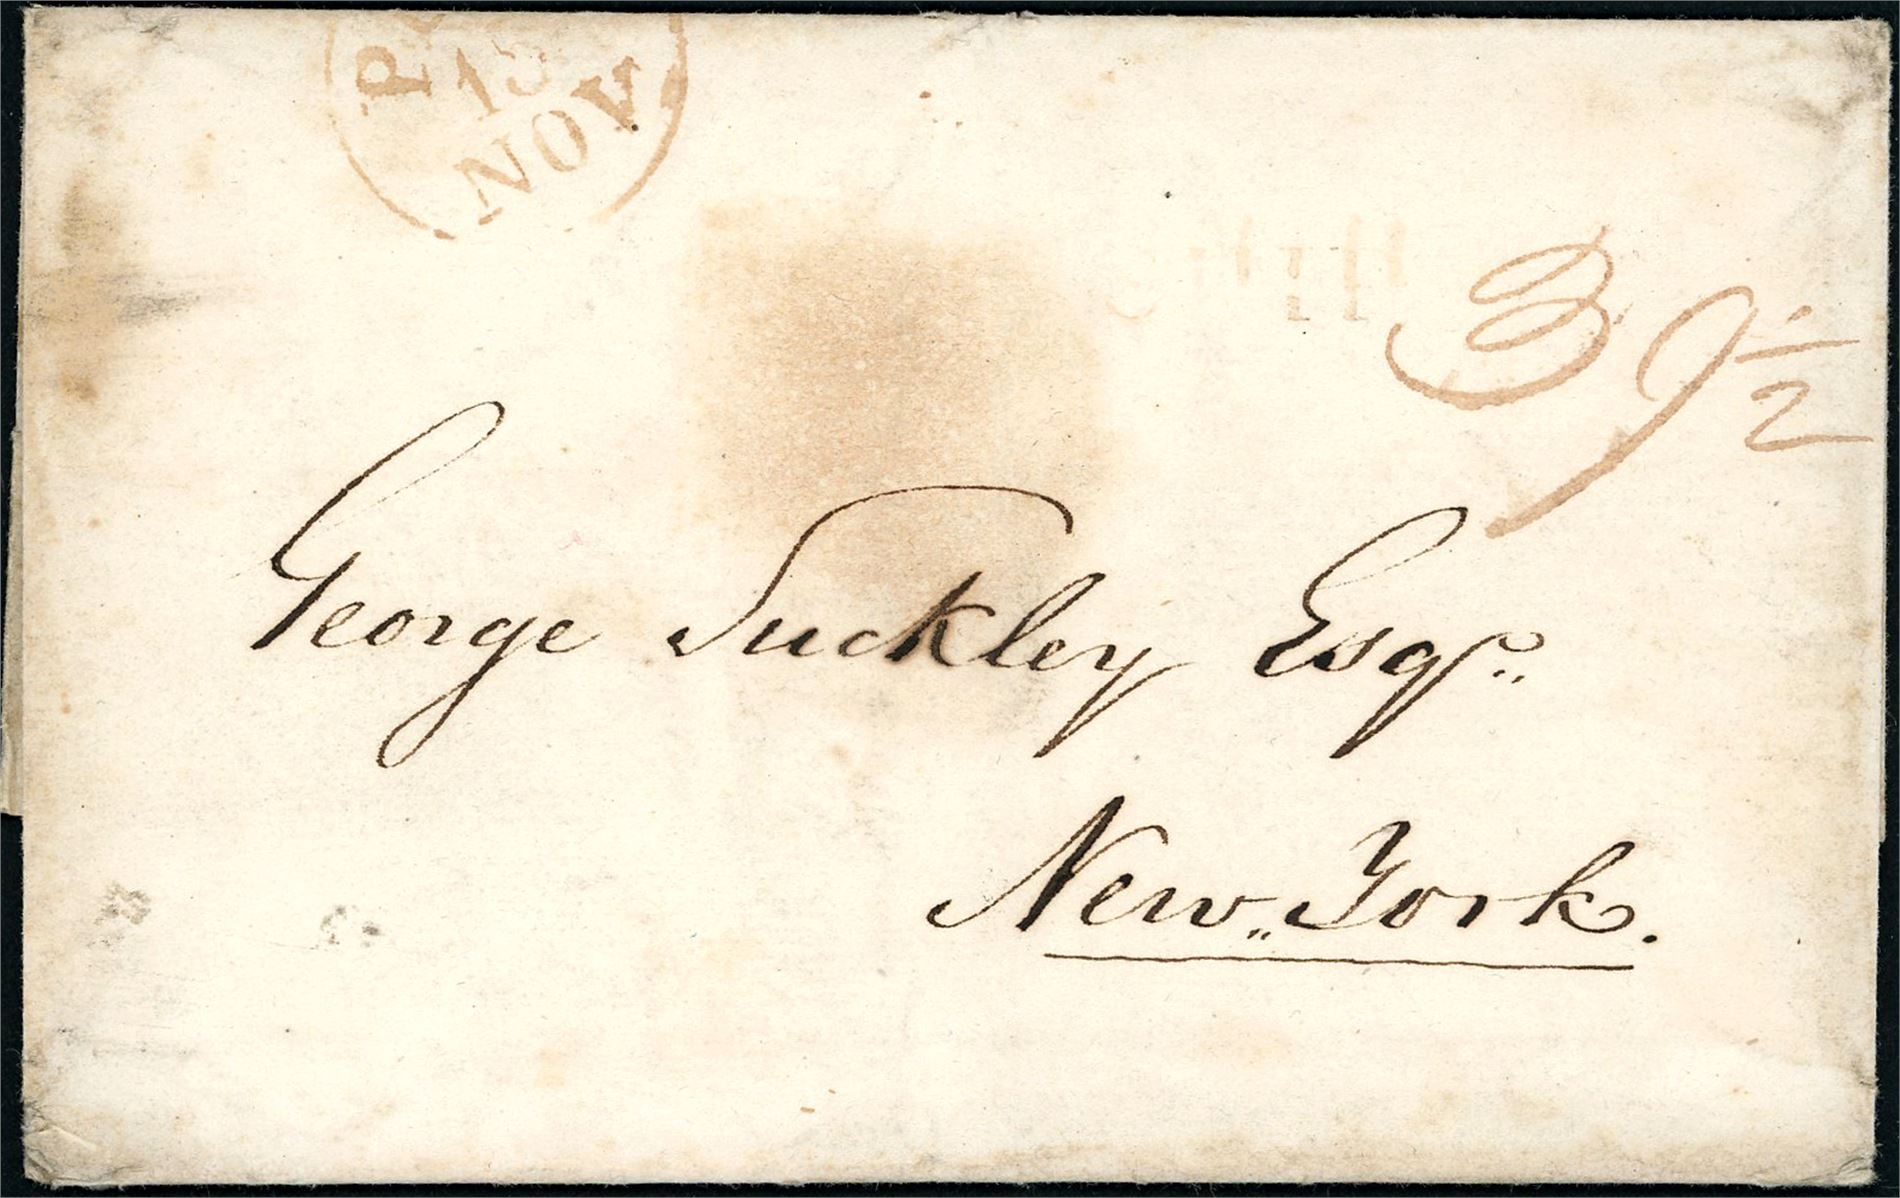 NOV
3 9 1/2
George Suckley Esqr.
New York.